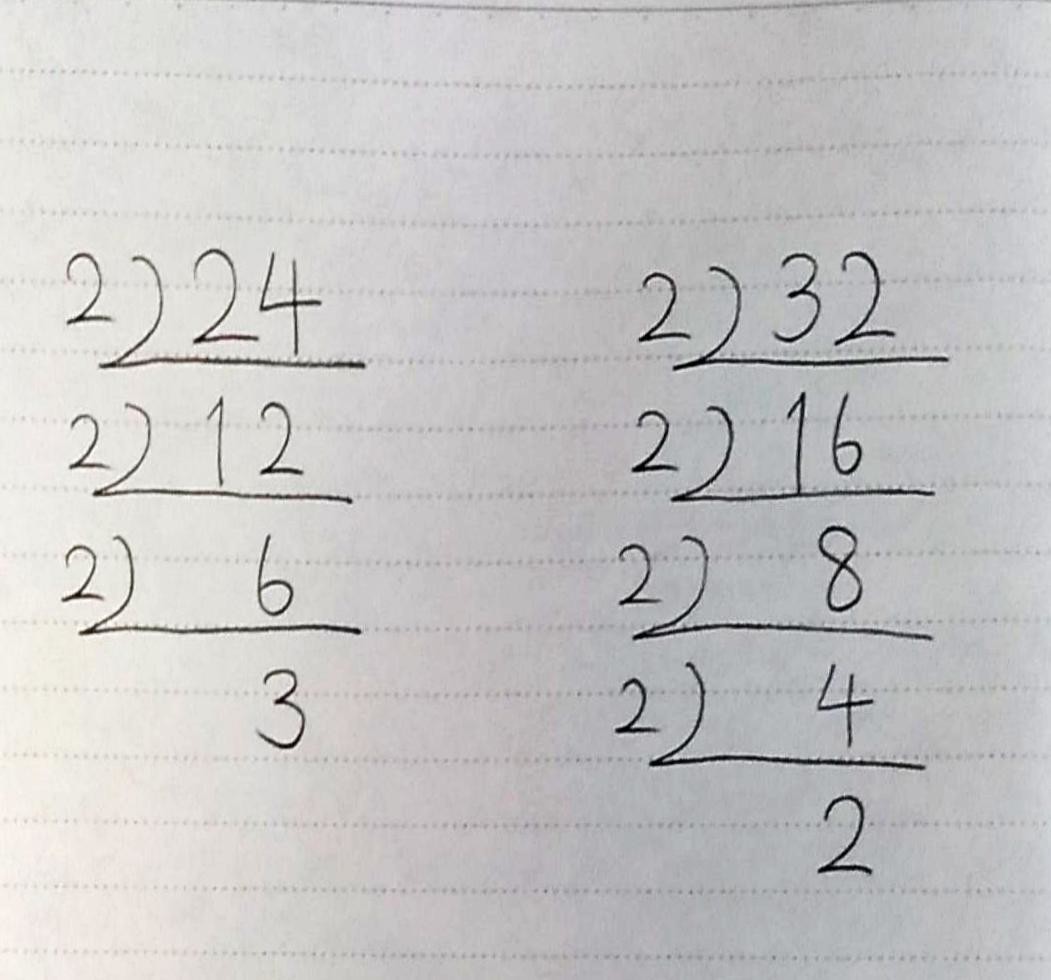 2)24
2)12
2) 6
3
2)32
2)16
2) 8
2) 4
2